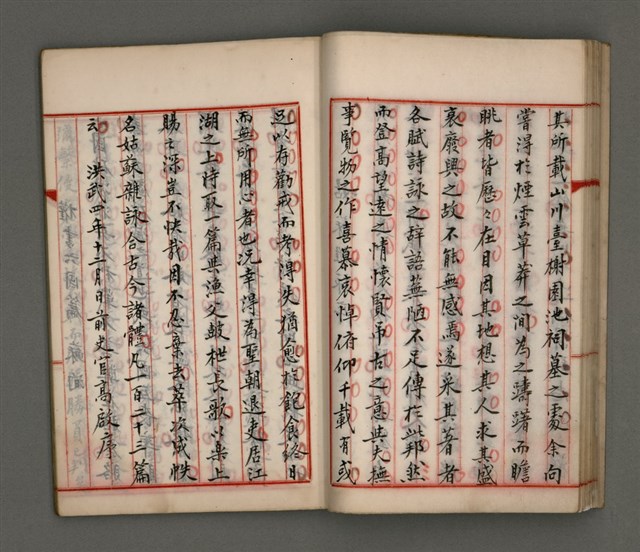 其所載山川臺榭園池祠墓之處余向
嘗得於煙雲草莽之間為之躊躇而瞻
眺者皆歷々在目因其地想其人求其盛
衰廢興之故不能無感焉遂采其著者
各賦詩詠之辞語蕪陋不足傳於此邦然
而登高望遠之情懷賢弔古之意與夫撫
事覽物之作喜慕哀悼俯仰千載有或
足以存勸戒而考得失猶愈於飽食終日
而無所用心者也况幸得為聖朝退吏居江
湖之上時取一篇與漁父鼓枻長歌以樂上
賜之深豈不快哉因不忍棄去萃次成帙
名姑蘇雜詠合古今諸體凡一百二十三篇
云 洪武四年十二月日前史官高啟序